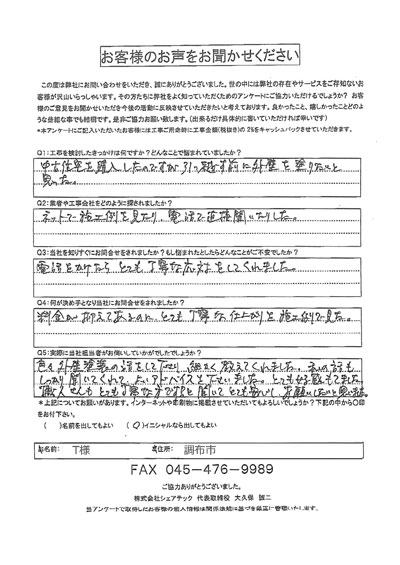 お客様のお声をお聞かせください
この度は弊社にお問い合わせをいただき、誠にありがとうございました。世の中には弊社の存在やサービスをご存知ないお
客様が沢山いらっしゃいます。その方たちに弊社をよく知っていただくためのアンケートにご協力いただけるでしょうか？お客
様のご意見をお聞かせいただき今後の活動に反映させていただきたいと考えております。良かったこと、嬉しかったことどのよ
うな些細な事でも結構です。是非ご協力お願い致します。(出来るだけ具体的に書いていただければ幸いです)
*本アンケートにご記入いただいたお客様には工事ご用命時に工事金額(税抜き)の2%をキャッシュバックさせていただきます。
Q1:工事を検討したきっかけは何ですか？どんなことで悩まれていましたか？
中古住宅を購入したのですが引っ越す前に外壁を塗りたいと
思った。
Q2:業者や工事会社をどのように探されましたか？
ネットで施工例を見たり、電話で直接聞いたりした。
Q3:当社を知りすぐにお問合せをされましたか？もし悩まれたとしたらどんなことがご不安でしたか？
電話をかけたら とても丁寧な応対をしてくれました。
Q4:何が決め手となり当社にお問合せをされましたか？
料金が抑えてあるのに、とても丁寧な仕上がりと施工例で見た。
Q5:実際に当社担当者がお伺いしていかがでしたでしょうか？
色々外壁塗装の話をして下さり 細かく教えてくれました。私の話も
しっかり聞いてくれて、よいアドバイスを下さいました。とても好感もてました。
職人さんもとても丁寧な方と聞いてとても安心し、お願いしたいと思った。
*上記についてお願いがあります。インターネットや印刷物に掲載させていただいてもよろしいでしょうか？下記の中から〇印
をお付下さい。
( )名前を出してもよい (〇)イニシャルなら出してもよい
お名前: T様 ご住所: 調布市
FAX 045-476-9989
ご協力ありがとうございました。
株式会社シェアテック 代表取締役 大久保 誠二
当アンケートで取得したお客様の個人情報は関係法規に基づき厳正に管理いたします。